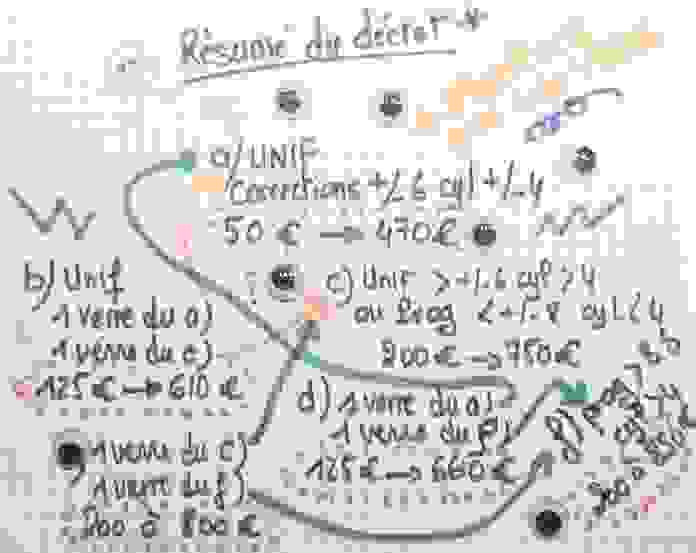 Résumé du décret *
a/ UNIF
Corrections +/- 6 cyl +/- 4
50 € → 470 €
b) Unif
1 verre du a)
1 verre du c)
125 € → 610 €
c) Unif > +/- 6 cyl > 4
ou Prog < +/- 8 cyl < 4
200 € → 750 €
d) 1 verre du a)
1 verre du f)
125 € → 660 €
1 verre du c)
1 verre du f)
200 à 800 €
f) prog > 8
cyl > 4
200 à 850 €